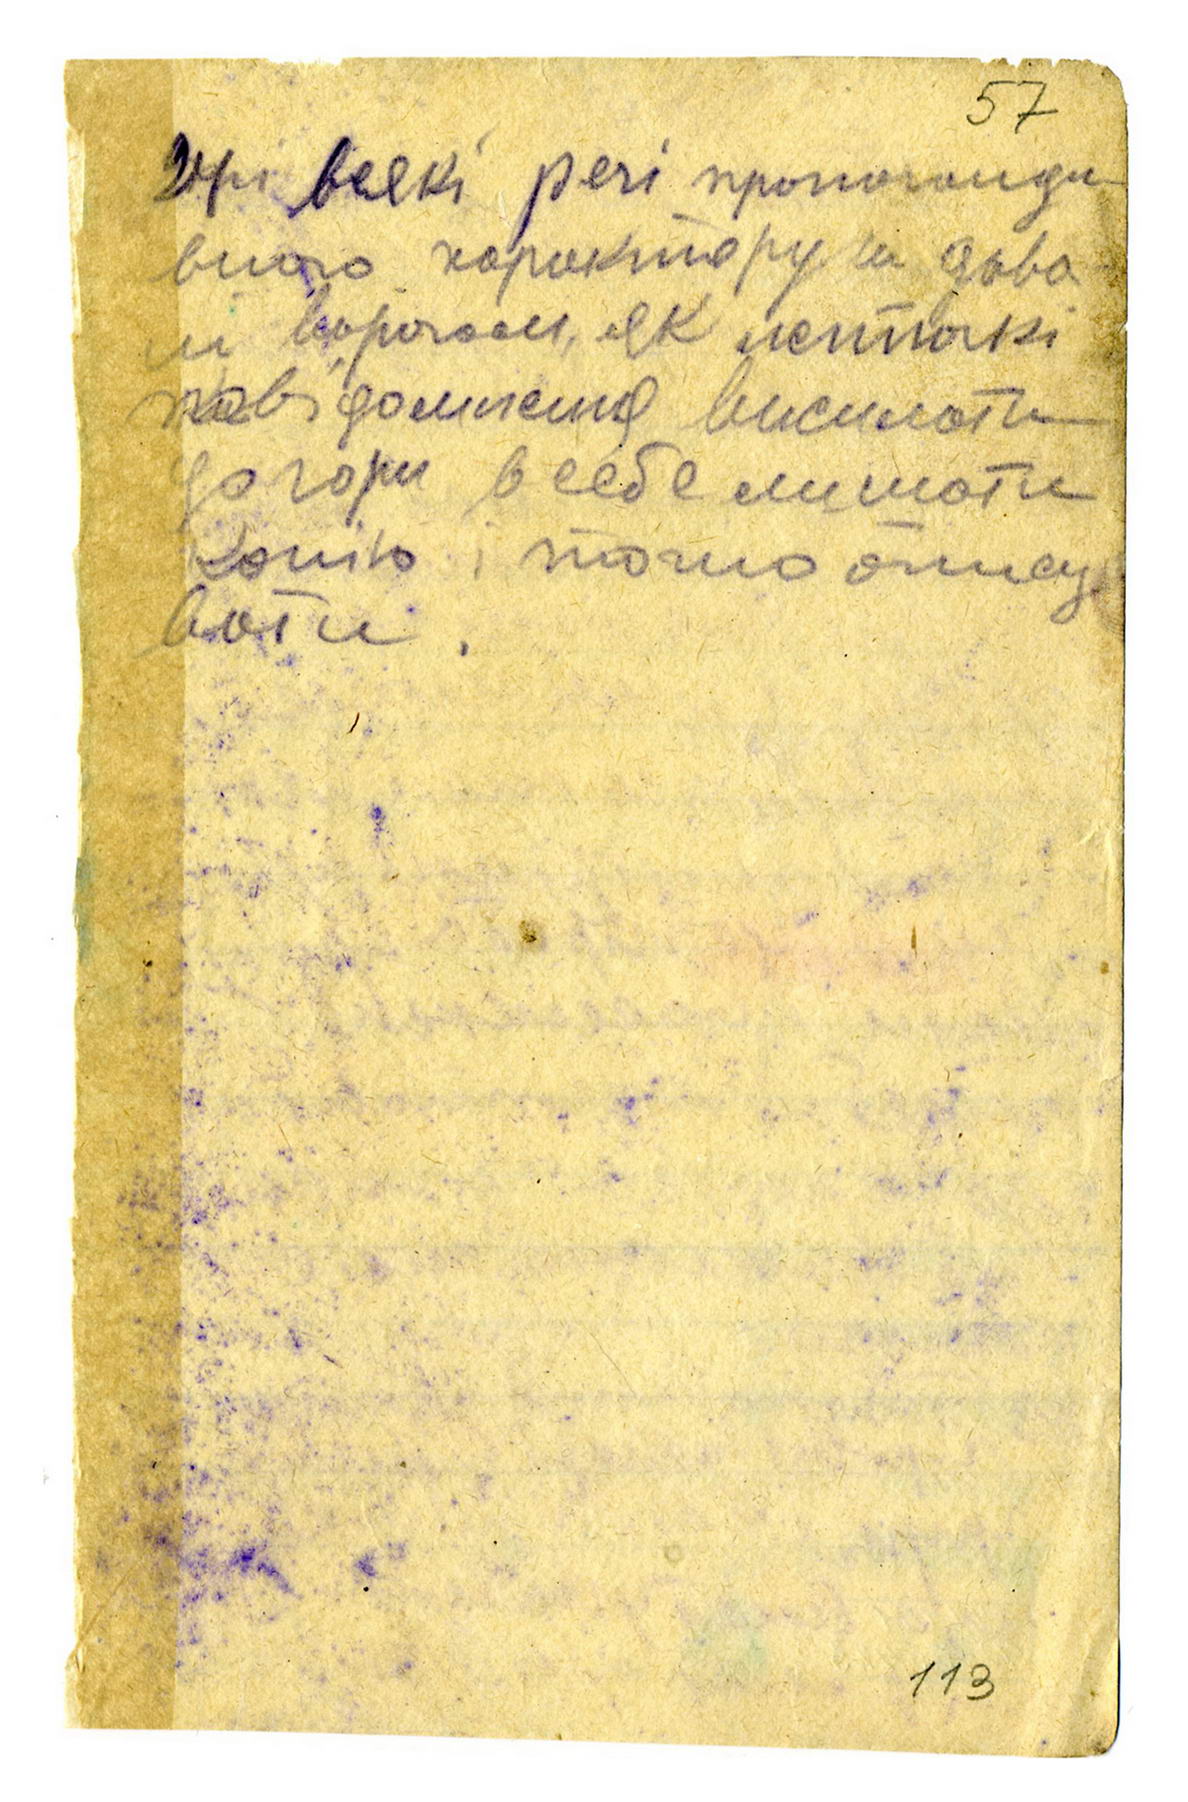 57
всякі речі пропоганди
вного характеру
ворогом, як леточкі
повідомленя висилати
догори в себе лишати
копію і точно опису
вати.
113